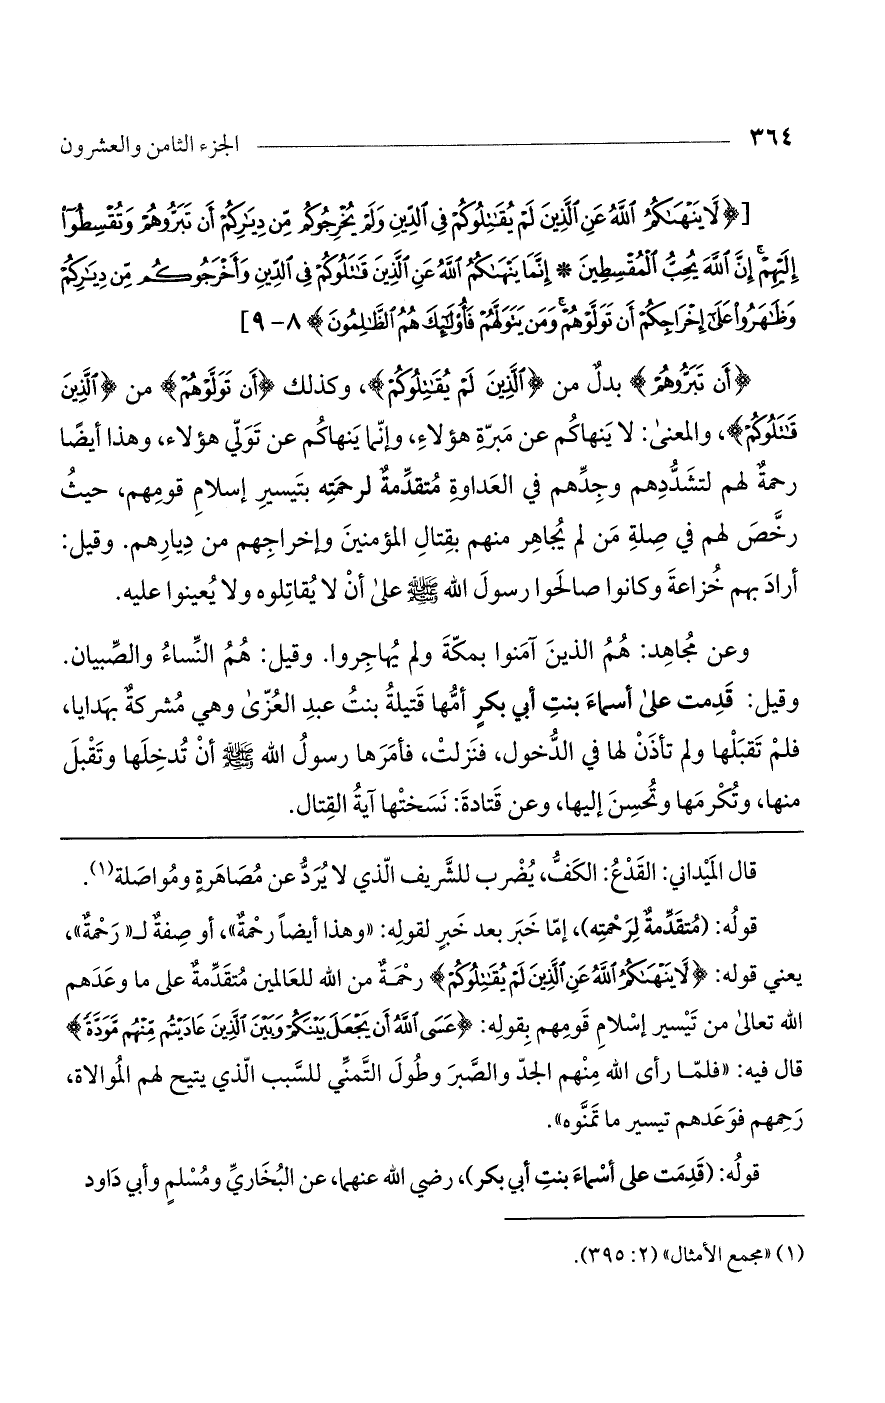 ٣٦٤ الجزء الثامن والعشرون
[﴿لَا يَنْهَىٰكُمُ ٱللَّهُ عَنِ ٱلَّذِينَ لَمْ يُقَٰتِلُوكُمْ فِى ٱلدِّينِ وَلَمْ يُخْرِجُوكُم مِّن دِيَٰرِكُمْ أَن تَبَرُّوهُمْ وَتُقْسِطُوٓا۟
إِلَيْهِمْ ۚ إِنَّ ٱللَّهَ يُحِبُّ ٱلْمُقْسِطِينَ * إِنَّمَا يَنْهَىٰكُمُ ٱللَّهُ عَنِ ٱلَّذِينَ قَٰتَلُوكُمْ فِى ٱلدِّينِ وَأَخْرَجُوكُم مِّن دِيَٰرِكُمْ
وَظَٰهَرُوا۟ عَلَىٰٓ إِخْرَاجِكُمْ أَن تَوَلَّوْهُمْ ۚ وَمَن يَتَوَلَّهُمْ فَأُو۟لَٰٓئِكَ هُمُ ٱلظَّٰلِمُونَ﴾ ٨-٩]
﴿أَن تَبَرُّوهُمْ﴾ بدلٌ من ﴿ٱلَّذِينَ لَمْ يُقَٰتِلُوكُمْ﴾، وكذلك ﴿أَن تَوَلَّوْهُمْ﴾ من ﴿ٱلَّذِينَ
قَٰتَلُوكُمْ﴾، والمعنىٰ: لا يَنهاكُم عن مَبرّةِ هؤلاءِ، وإنّما يَنهاكُم عن تَولّي هؤلاء، وهذا أيضًا
رحمةٌ لهم لتشدُّدِهم وجِدِّهم في العَداوةِ مُتقدِّمةٌ لرحمَتِه بتَيسيرِ إسلامِ قومِهم، حيثُ
رخَّصَ لهم في صِلةِ مَن لم يُجاهِر منهم بقِتالِ المؤمنينَ وإخراجِهم من دِيارِهم. وقيل:
أرادَ بهم خُزاعةَ وكانوا صالَحوا رسولَ الله ﷺ علىٰ أنْ لا يُقاتِلوه ولا يُعينوا عليه.
وعن مُجاهِد: هُمُ الذينَ آمَنوا بمكّةَ ولم يُهاجِروا. وقيل: هُمُ النِّساءُ والصِّبيان.
وقيل: قَدِمت علىٰ أسماءَ بنتِ أبي بكرٍ أمُّها قَتيلةُ بنتُ عبدِ العُزّىٰ وهي مُشركةٌ بهَدايا،
فلمْ تَقبَلْها ولم تأذَنْ لها في الدُّخول، فنَزلتْ، فأمَرَها رسولُ الله ﷺ أنْ تُدخِلَها وتَقْبلَ
منها، وتُكْرمَها وتُحسِنَ إليها، وعن قَتادةَ: نَسَختْها آيةُ القِتال.
قال المَيْداني: القَدْعُ: الكَفُّ، يُضْرب للشَّريف الّذي لا يُرَدُّ عن مُصَاهَرةٍ ومُواصَلة(١).
قولُه: (مُتقَدِّمةٌ لِرَحْمتِه)، إمّا خَبَر بعد خَبرٍ لقولِه: «وهذا أيضاً رحْمةٌ»، أو صِفةٌ لـ«رَحْمةٌ»،
يعني قوله: ﴿لَا يَنْهَىٰكُمُ ٱللَّهُ عَنِ ٱلَّذِينَ لَمْ يُقَٰتِلُوكُمْ﴾ رحْمَـةٌ من الله للعَالمين مُتقَدِّمةٌ على ما وعَدَهم
الله تعالىٰ من تَيْسير إسْلامِ قَومِهم بِقولِه: ﴿عَسَى ٱللَّهُ أَن يَجْعَلَ بَيْنَكُمْ وَبَيْنَ ٱلَّذِينَ عَادَيْتُم مِّنْهُم مَّوَدَّةً﴾
قال فيه: «فلمّـا رأى الله مِنْهم الجدّ والصَّبرَ وطُولَ التَّمنِّي للسَّبب الّذي يتيح لهم المُوالاة،
رَحِمهم فوَعَدهم تيسير ما تمَنَّوه».
قولُه: (قَدِمَت على أسْماءَ بنتِ أبي بكر)، رضي الله عنهما، عن البُخَاريِّ ومُسْلمٍ وأبي دَاود
(١) «مجمع الأمثال» (٢: ٣٩٥).